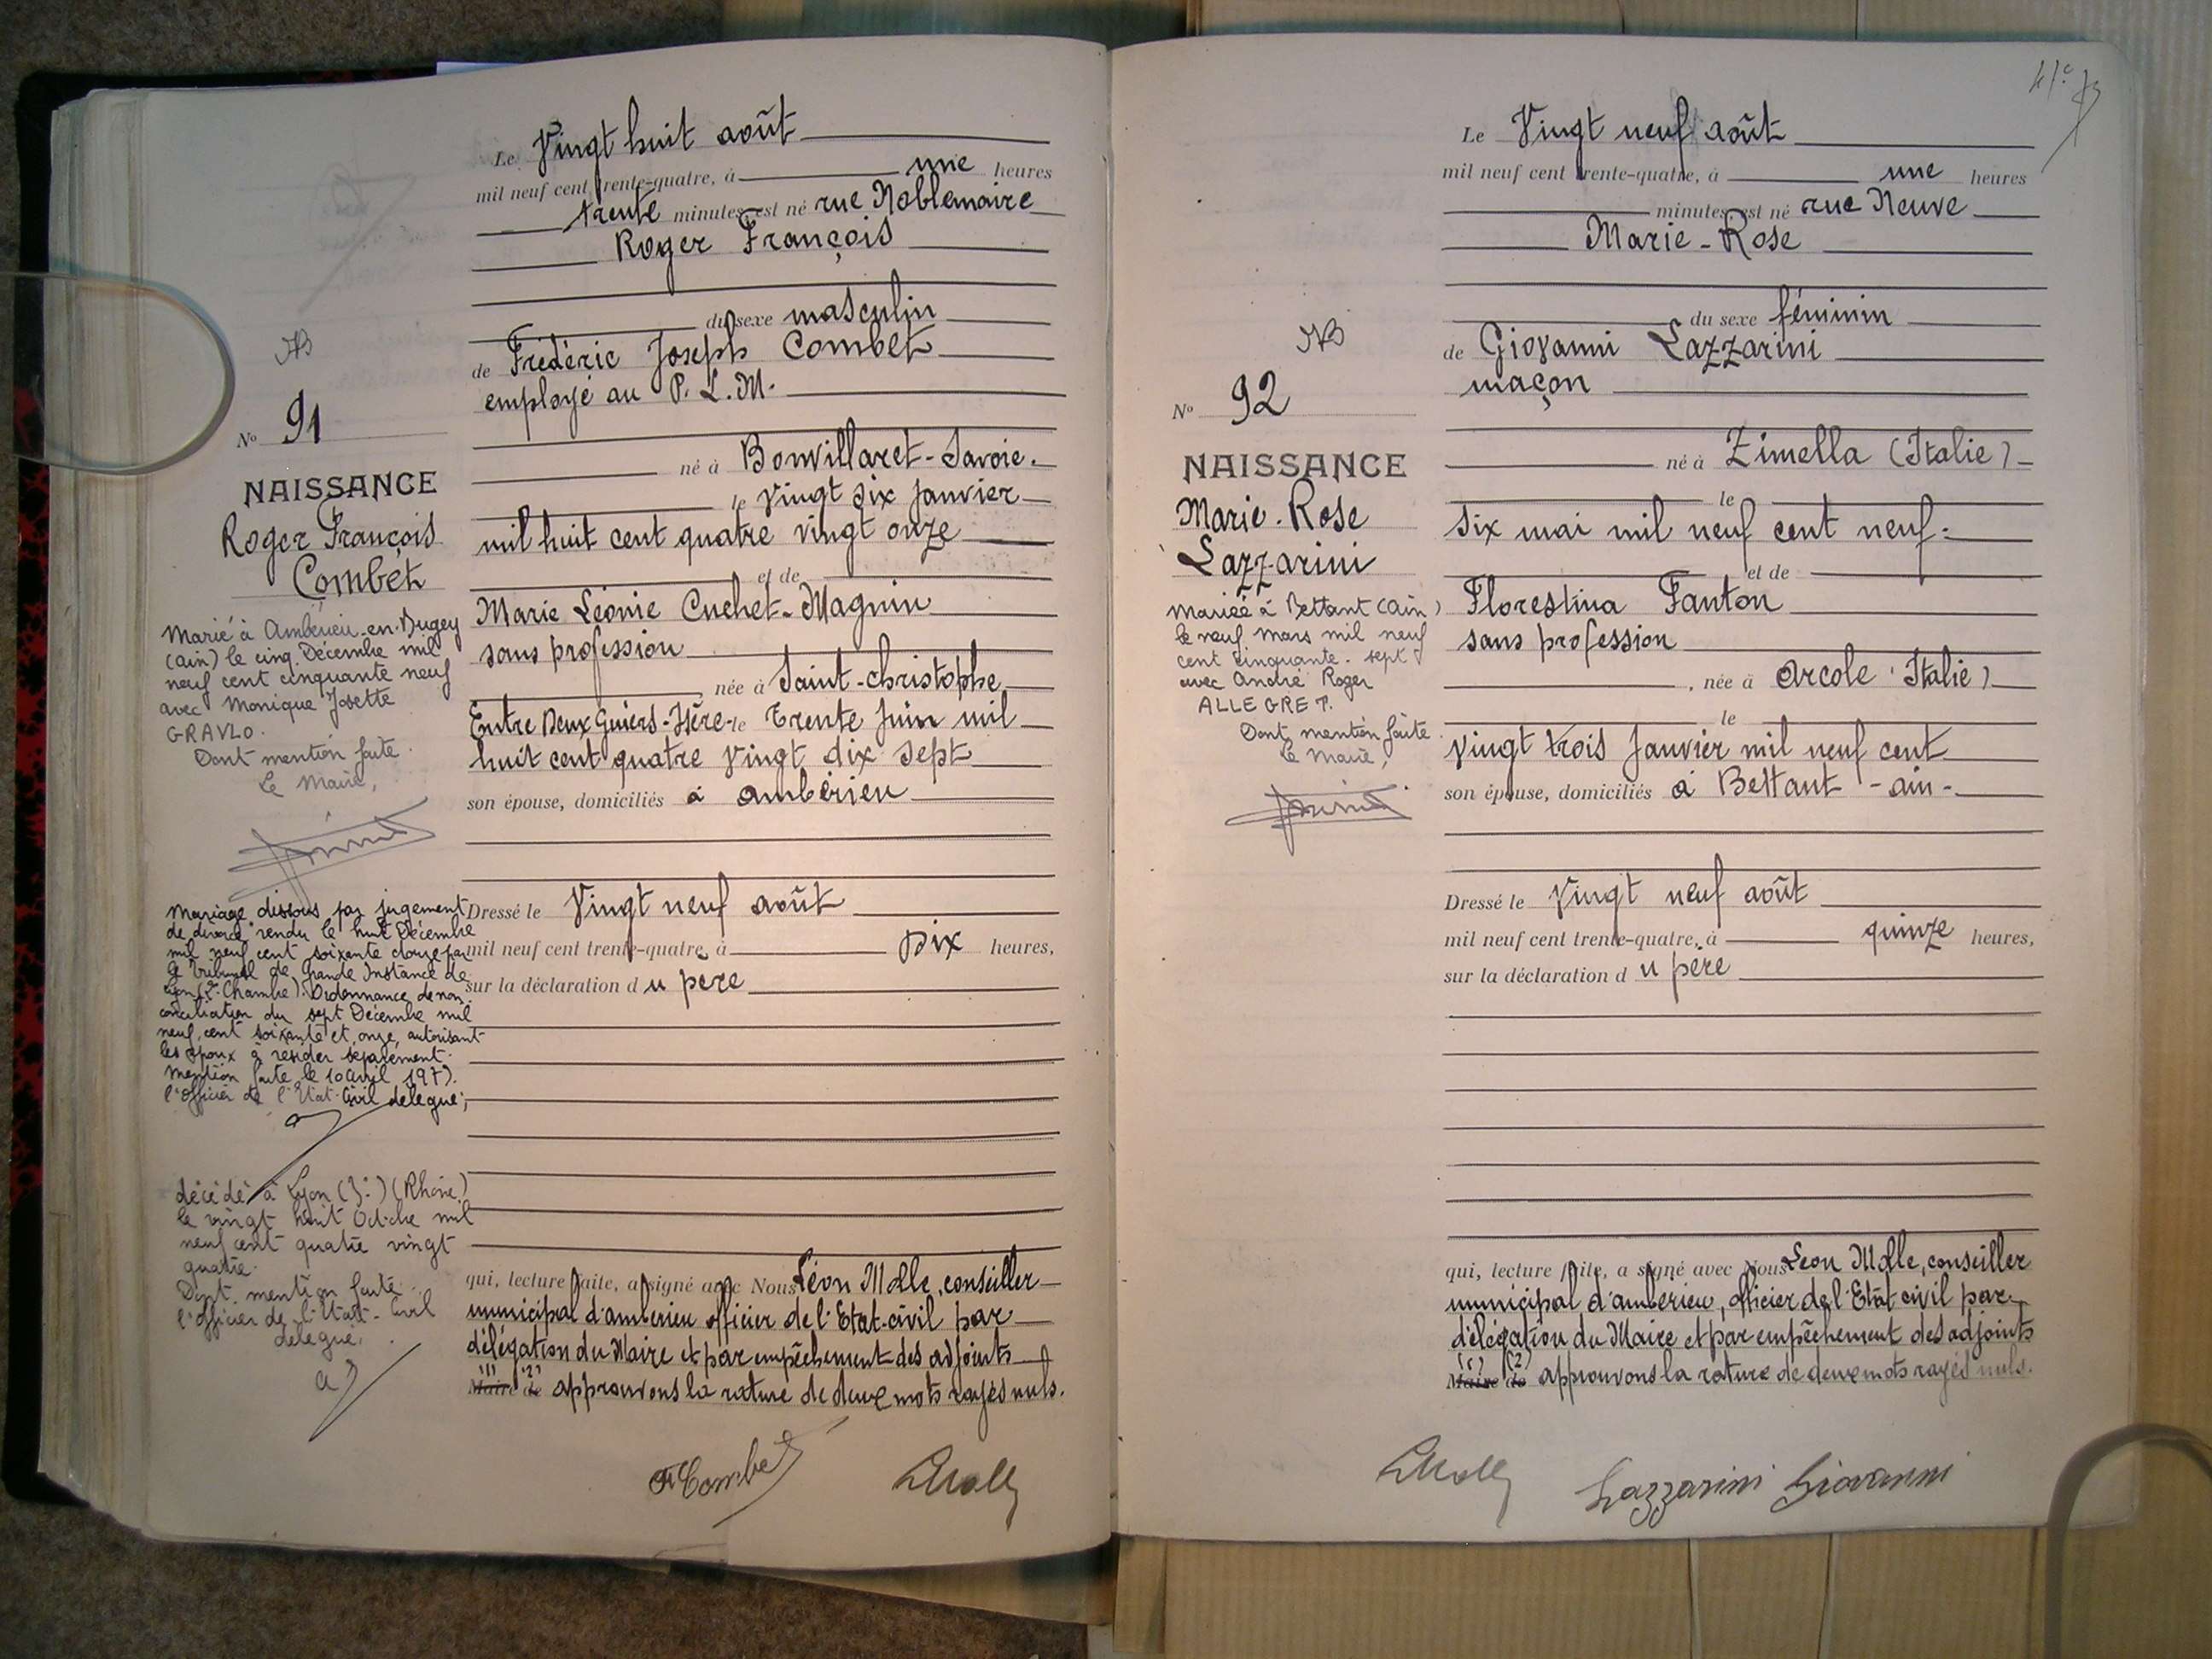 Le Vingt huit août
mil neuf cent trente-quatre, à une heures
trente minutes, est né rue Noblemaire
Roger François
du sexe masculin
de Frédéric Joseph Combet
employé au P.L.M.
né à Bonvillaret-Savoie.
le Vingt six janvier
mil huit cent quatre vingt onze
et de
Marie Léonie Cuchet-Magnin
sans profession
née à Saint-Christophe
Entre Deux Guiers-Isère- le trente juin mil
huit cent quatre vingt dix sept
son épouse, domiciliés à ambérieu
Dressé le Vingt neuf août
mil neuf cent trente-quatre, à Dix heures,
sur la déclaration du père
qui, lecture faite, a signé avec Nous Léon Molle, conseiller
municipal d'ambérieu officier de l'Etat-civil par
délégation du Maire et par empêchement des adjoints
(1) (2)
Maire de approuvons la rature de deux mots rayés nuls.
F Combet
LMolle
N° 91
NAISSANCE
Roger François
Combet
Marié à Ambérieu-en-Bugey
(Ain) le cinq Décembre mil
neuf cent cinquante neuf
avec Monique Josette
GRAVLO.
Dont mention faite.
Le Maire,
Mariage dissous par jugement
de divorce rendu le huit Décembre
mil neuf cent soixante douze par
le Tribunal de Grande Instance de
Lyon (2e Chambre). Ordonnance de non
conciliation du sept Décembre mil
neuf cent soixante et onze, autorisant
les époux à résider séparément.
Mention faite le 10 avril 1973.
l'Officier de l'Etat-Civil délégué,
décédé à Lyon (3e) (Rhône)
le vingt huit Octobre mil
neuf cent quatre vingt
quatre.
Dont mention faite.
l'Officier de l'Etat-Civil
délégué,
Le Vingt neuf août
mil neuf cent trente-quatre, à une heures
minutes, est né rue Neuve
Marie-Rose
du sexe féminin
de Giovanni Lazzarini
maçon
né à Zimella (Italie)
le
six mai mil neuf cent neuf.
et de
Florestina Fanton
sans profession
, née à Arcole (Italie)
le
vingt trois Janvier mil neuf cent
son épouse, domiciliés à Bettant -ain-
Dressé le Vingt neuf août
mil neuf cent trente-quatre, à quinze heures,
sur la déclaration du père
qui, lecture faite, a signé avec Nous Léon Molle, conseiller
municipal d'ambérieu, officier de l'Etat civil par
délégation du Maire et par empêchement des adjoints
(1) (2)
Maire de approuvons la rature de deux mots rayés nuls.
LMolle
Lazzarini Giovanni
N° 92
NAISSANCE
Marie-Rose
Lazzarini
Mariée à Bettant (Ain)
le neuf Mars mil neuf
cent cinquante-sept
avec André Roger
ALLEGRET.
Dont mention faite
Le Maire,